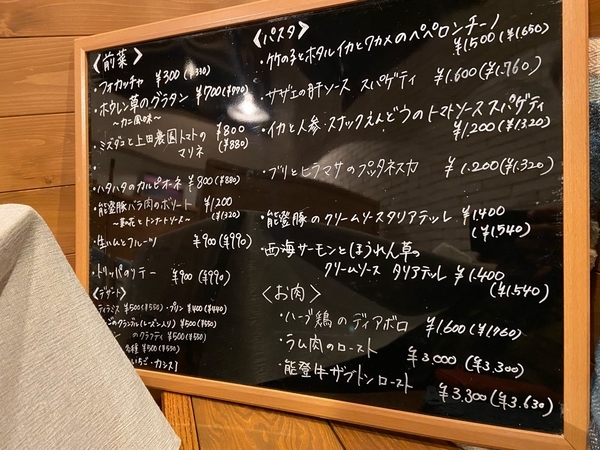 〈前菜〉
・フォカッチャ ¥300(¥330)
・ホウレン草のグラタン ¥700(¥770)
〜カニ風味〜
・ミズダコと上田農園トマトの ¥800
マリネ (¥880)
・
・ハタハタのカルピオーネ ¥800(¥880)
・能登豚バラ肉のボリート ¥1,200
トンナートソース〜 (¥1,320)
・生ハムとフルーツ ¥900(¥990)
・トリッパのソテー ¥900(¥990)
〈デザート〉
ティラミス ¥500(¥550)・プリン ¥400(¥440)
のクランブル(レーズン入り) ¥500(¥550)
のクラフティ ¥500(¥550)
各種 ¥500(¥550)
いちご・カシス
〈パスタ〉
・竹の子とホタルイカとワカメのペペロンチーノ
¥1500(¥1,650)
・サザエの肝ソース スパゲティ ¥1.600(¥1.760)
・イカと人参、スナックえんどうのトマトソーススパゲティ
¥1,200(¥1,320)
・ブリとヒラマサのプッタネスカ ¥1.200(¥1.320)
・能登豚のクリームソースタリアテッレ ¥1400
(¥1,540)
・西海サーモンとほうれん草の
クリームソース タリアテッレ ¥1.400
(¥1.540)
〈お肉〉
・ハーブ鶏のディアボロ ¥1.600(¥1760)
・ラム肉のロースト ¥3.000(¥3.300)
・能登牛ザブトンロースト ¥3.300(¥3.630)